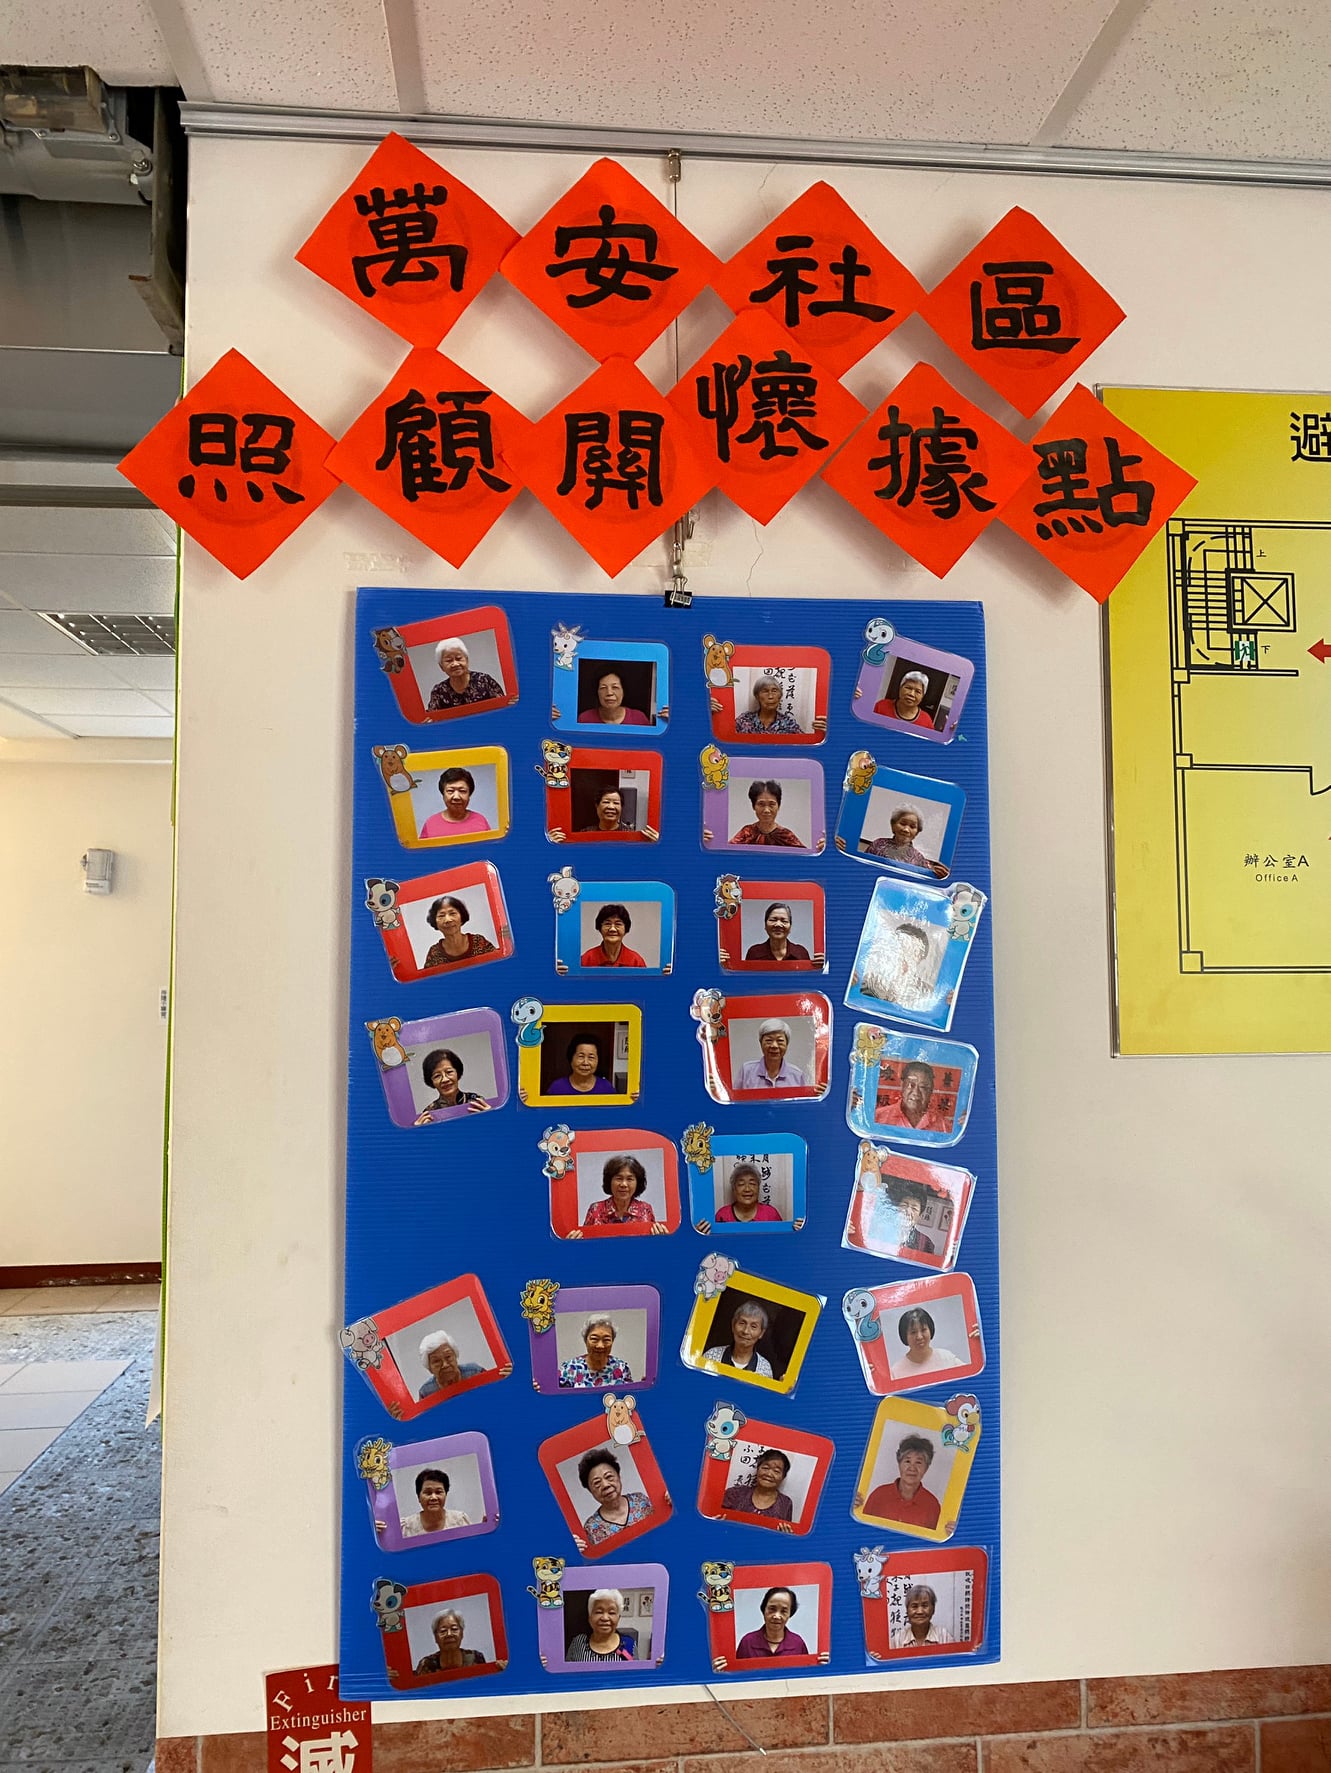 萬安社區
照顧關懷據點
避
上
下
辦公室A
Office A
Fir
Extinguisher
滅